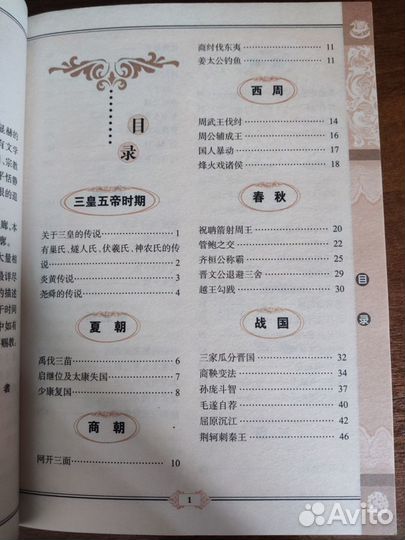 显赫的
有文学
、宗教
平恬静
根的追
廊,本
廓。
大量相
最详尽
的描述
于时间
中如有
赐教!
者
目
录
三皇五帝时期
关于三皇的传说 1
有巢氏、燧人氏、伏羲氏、神农氏的传
说 2
炎黄传说 3
尧舜的传说 4
夏 朝
禹伐三苗 6
启继位及太康失国 7
少康复国 8
商 朝
网开三面 10
商纣伐东夷 11
姜太公钓鱼 11
西 周
周武王伐纣 14
周公辅成王 16
国人暴动 17
烽火戏诸侯 18
春 秋
祝聃箭射周王 20
管鲍之交 22
齐桓公称霸 25
晋文公退避三舍 29
越王勾践 30
战 国
三家瓜分晋国 32
商鞅变法 34
孙庞斗智 37
毛遂自荐 40
屈原沉江 42
荆轲刺秦王 46
目
录
1
Avito